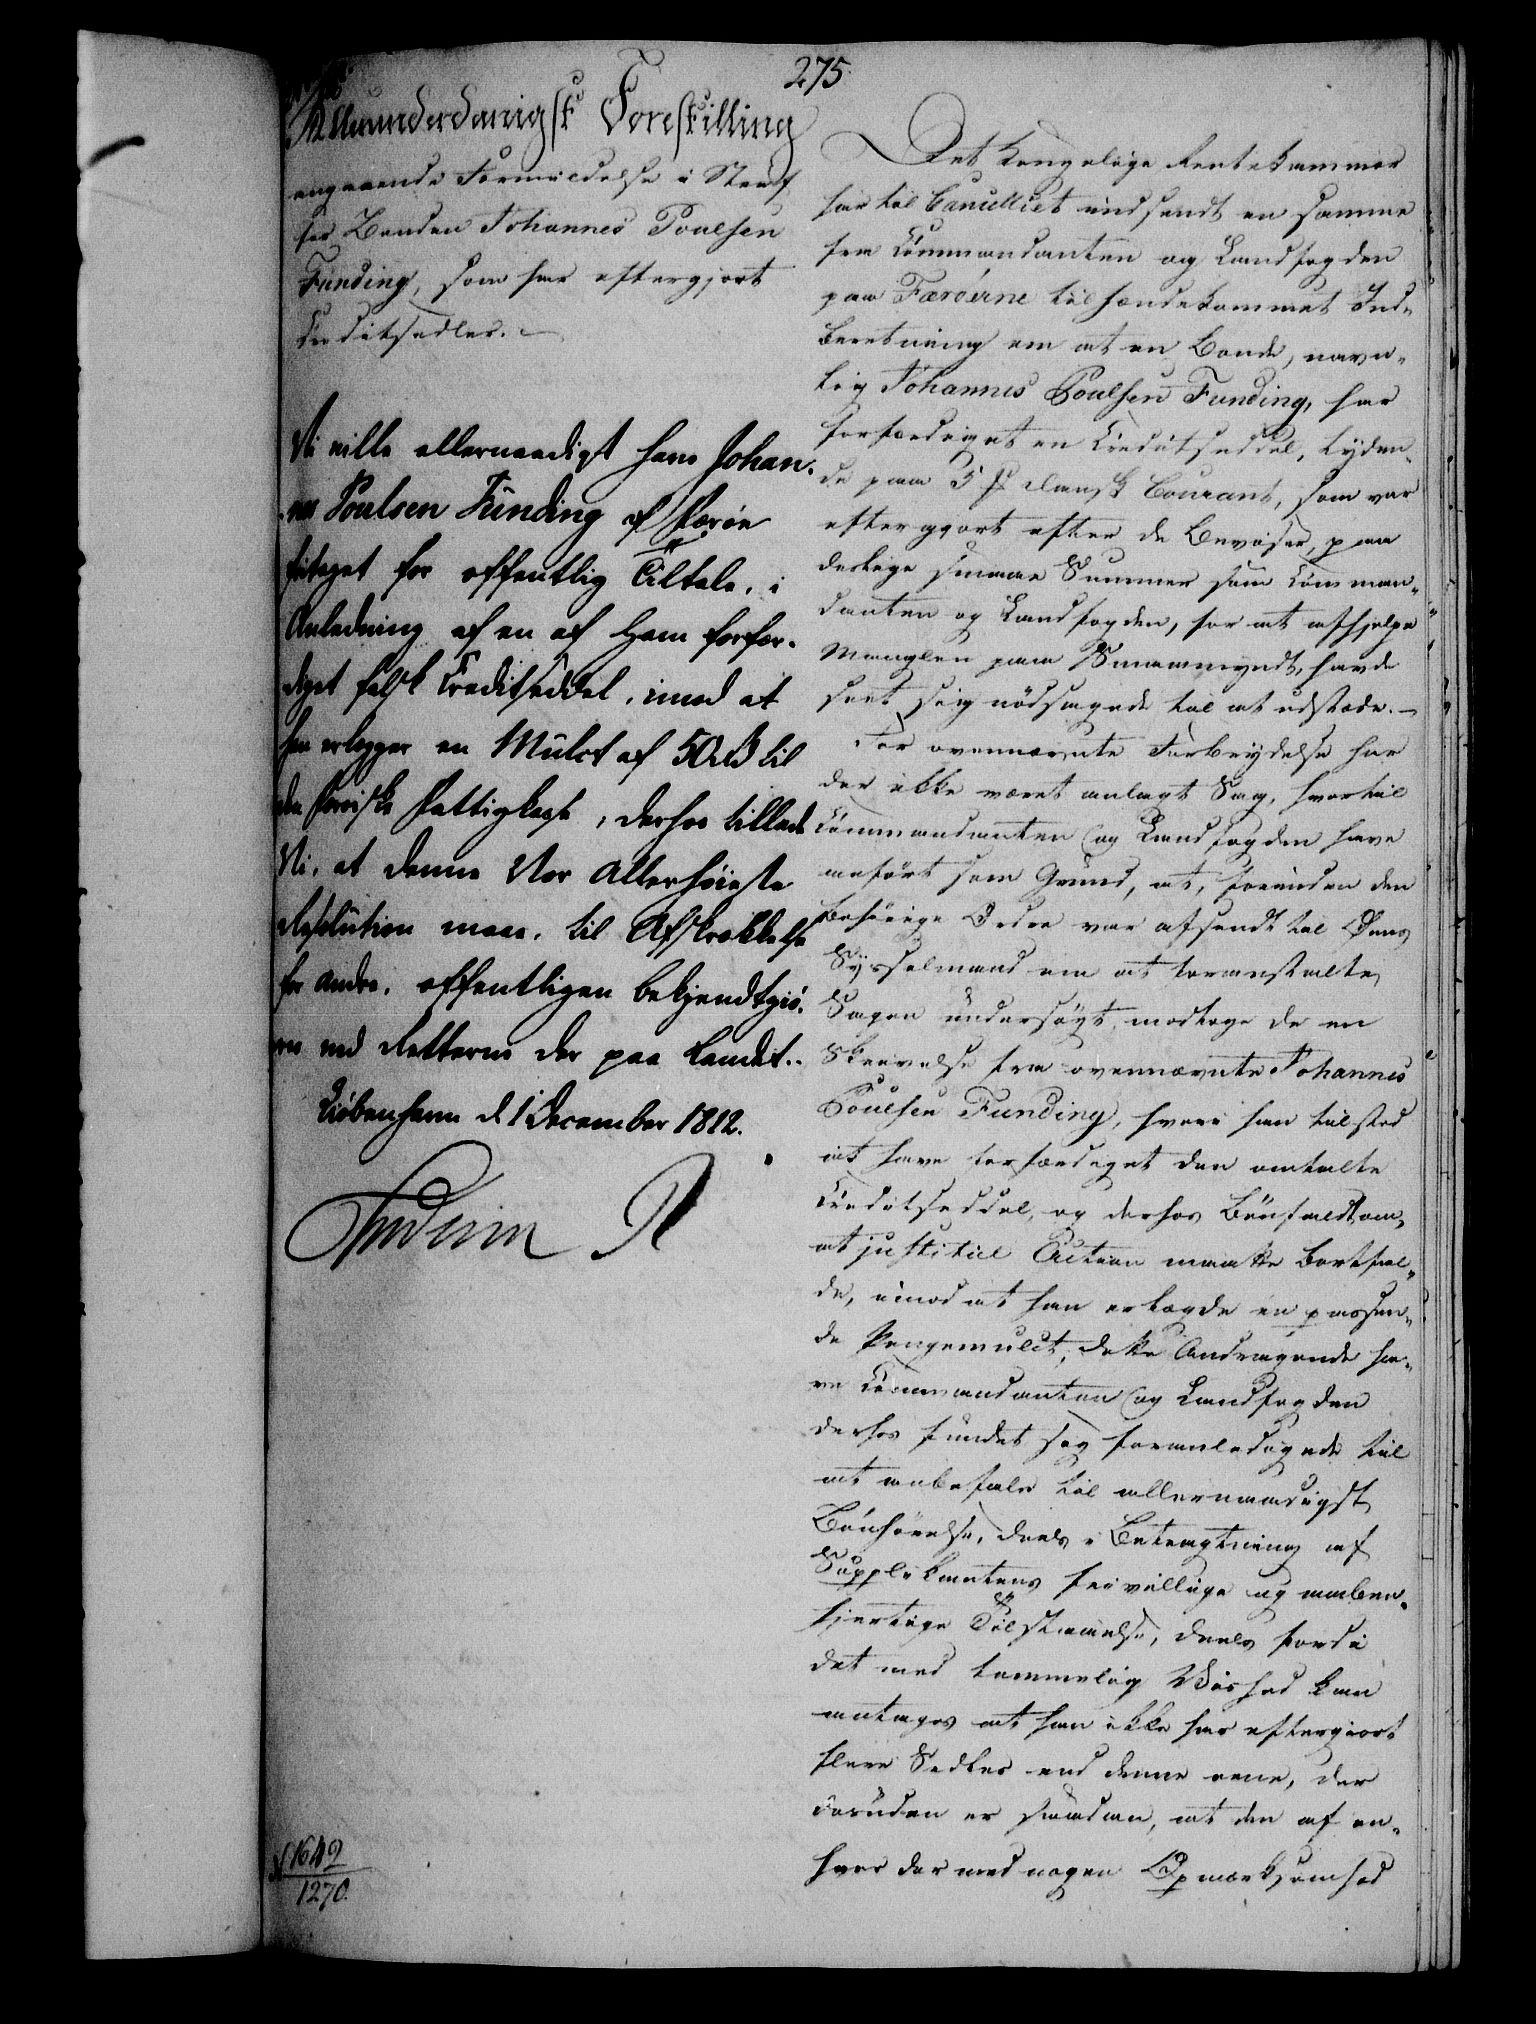 275.
Allerunderdanigst Forestilling
angaaende Formildelse i Straf
for Bonden Johannes Poulsen
Funding, som har eftergjort
Creditsedler.
Vi ville allernaadigst have Johan-
nes Poulsen Funding af Færøe
fritaget for offentlig Tiltale, i
Anledning af en af Ham forfær-
diget falsk Creditseddel, imod at
han erlægger en Mulct af 50 rd til
den færøiske Fattigkasse, derhos tillade
Vi, at denne Vor Allerhøieste
Resolution maae, til Afskrækkelse
for andre, offentligen bekjendtgiø-
res ved Retterne der paa Landet.
Kiøbenhavn d. 1 December 1812.
Frederik R
1649
1270.
Det Kongelige Rentekammer
har til Cancelliet indsendt en samme
fra Commandanten og Landfogden
paa Færøerne tilhændekommet Ind-
beretning om at en Bonde, navn-
lig Johannes Poulsen Funding, har
forfærdiget en Creditseddel, lyden-
de paa 5 ß dansk Courant, som var
eftergjort efter de Beviser, paa
deslige smaae Summer som Comman-
danten og Landfogden, for at afhjelpe
Manglen paa Smaamyndt, havde
seet sig nødsagede til at udstæde.
For ovennævnte Forbrydelse har
der ikke været anlagt Sag, hvortil
Commandanten og Landfogden have
anført som Grund, at, forinden den
behörige Ordre var afsendt til Øens
Sysselmand om at foranstalte
Sagen undersøgt, modtoge de en
Skrivelse fra ovennævnte Johannes
Poulsen Funding, hvori han tilstod
at have forfærdiget den omtalte
Creditseddel, og derhos bönfaldt om,
at justitiel Action maatte bortfal-
de, imod at han erlagde en passen-
de Pengemulct, dette Andragende ha-
ve Commandanten og Landfogden
derhos fundet sig foranledigede til
at anbefale til allernaadigst
Bönhörelse, deels i Betragtning af
Supplikantens frivillige og aaben-
hjertige Tilstaaelse, deels fordi
det med temmelig Vished kan
antages at han ikke har eftergiort
flere Sedler end denne eene, der
desuden er saadan, at den af en-
hver der med nogen Opmærksomhed